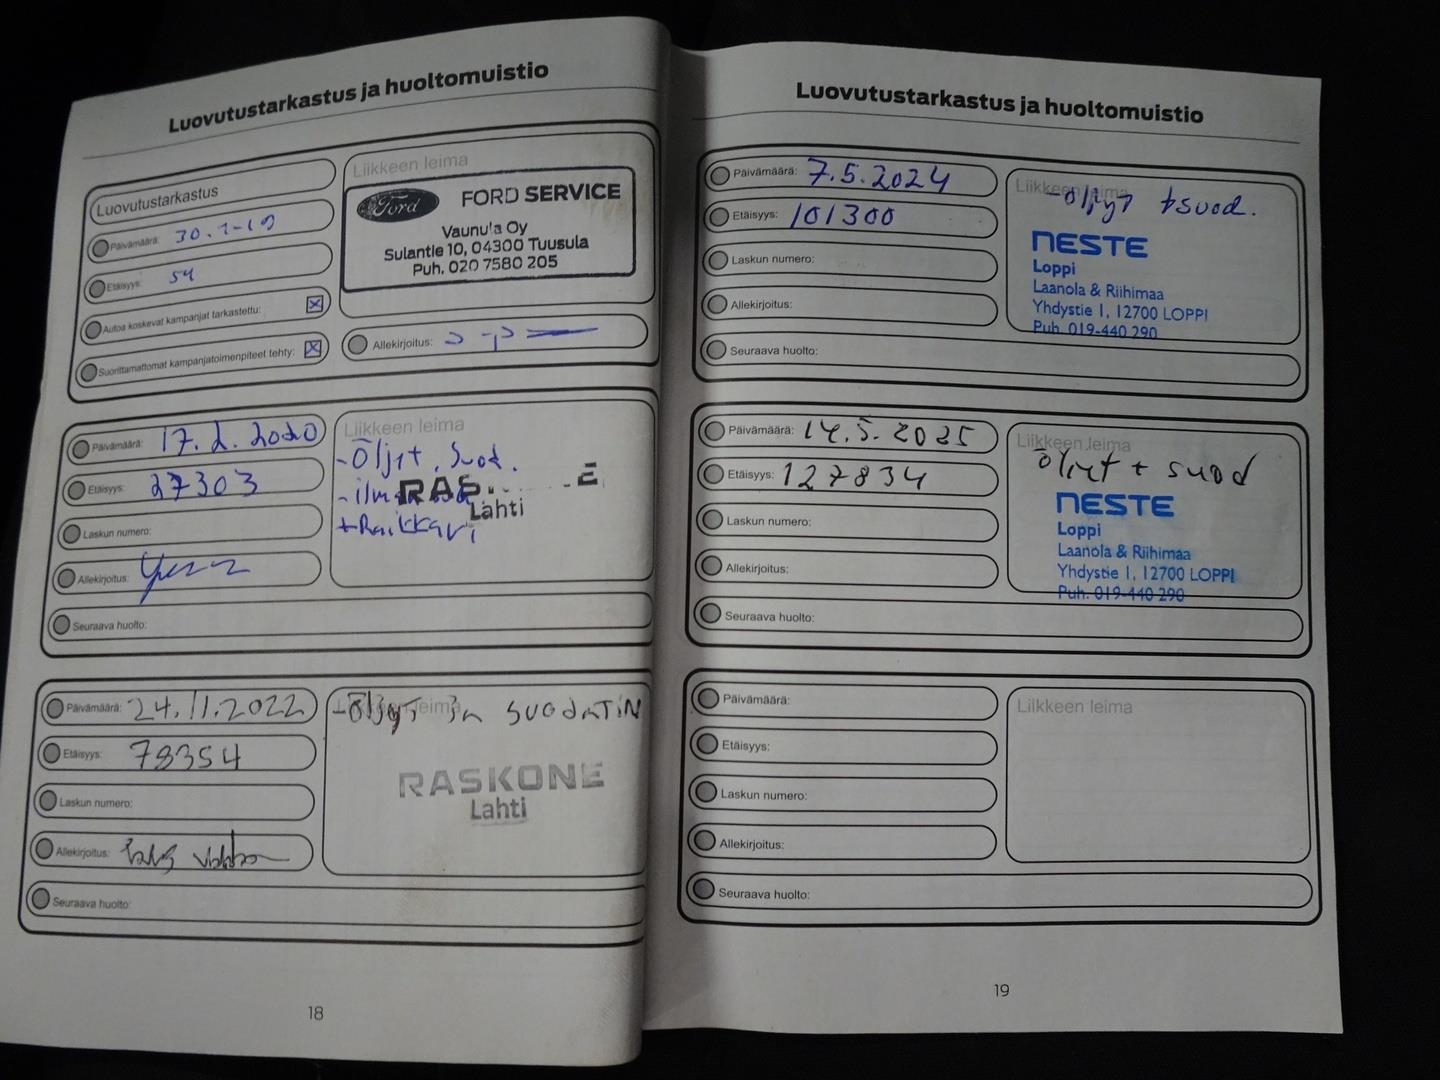 Luovutustarkastus ja huoltomuistio
Luovutustarkastus
Päivämäärä: 30.1-19
Etäisyys: 54
Autoa koskevat kampanjat tarkastettu: ☒
Suorittamattomat kampanjatoimenpiteet tehty: ☒
Liikkeen leima
Ford FORD SERVICE
Vaunula Oy
Sulantie 10, 04300 Tuusula
Puh. 020 7580 205
Allekirjoitus:
Päivämäärä: 17.2.2020
Etäisyys: 27303
Laskun numero:
Allekirjoitus:
Seuraava huolto:
Liikkeen leima
-Öljyt, Suod.
RAS E
Lahti
+Raikkari
Päivämäärä: 24.11.2022
Etäisyys: 78354
Laskun numero:
Allekirjoitus:
Seuraava huolto:
Liikkeen leima
-Öljyt ja SUODATIN
RASKONE
Lahti
18
Luovutustarkastus ja huoltomuistio
Päivämäärä: 7.5.2024
Etäisyys: 101300
Laskun numero:
Allekirjoitus:
Seuraava huolto:
Liikkeen leima
-Öljyt +suod.
NESTE
Loppi
Laanola & Riihimaa
Yhdystie 1, 12700 LOPPI
Puh. 019-440 290
Päivämäärä: 14.5.2025
Etäisyys: 127834
Laskun numero:
Allekirjoitus:
Seuraava huolto:
Liikkeen leima
öljyt + suod
NESTE
Loppi
Laanola & Riihimaa
Yhdystie 1, 12700 LOPPI
Puh. 019-440 290
Päivämäärä:
Etäisyys:
Laskun numero:
Allekirjoitus:
Seuraava huolto:
Liikkeen leima
19